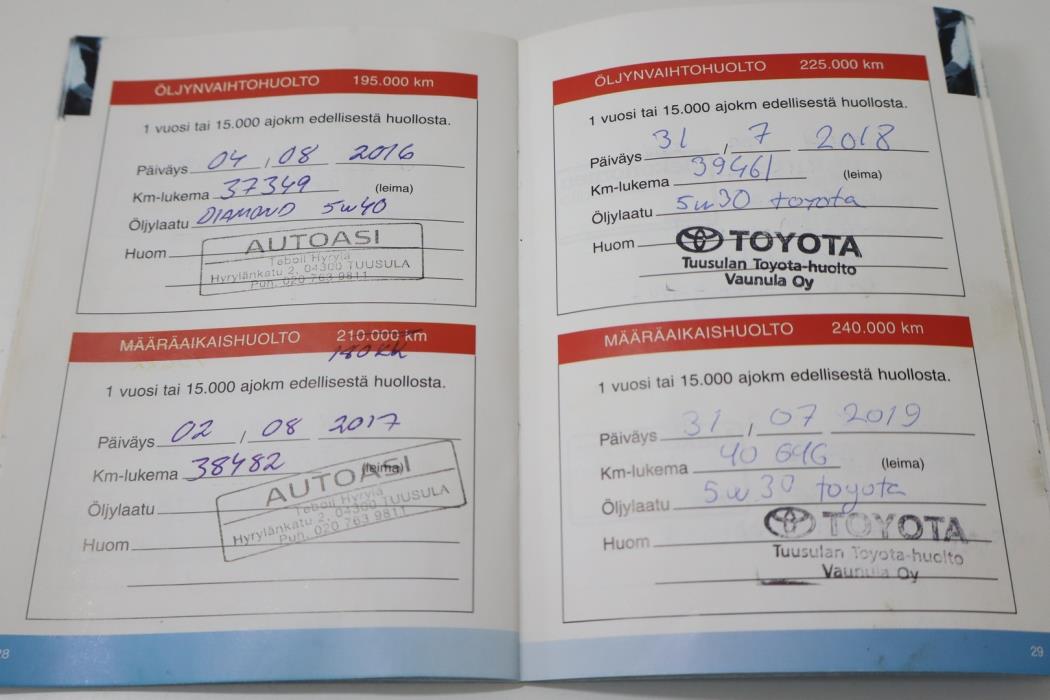 ÖLJYNVAIHTOHUOLTO 195.000 km
1 vuosi tai 15.000 ajokm edellisestä huollosta.
Päiväys 04 , 08 2016
Km-lukema 37349 (leima)
Öljylaatu DIAMOND 5w40
Huom
AUTOASI
Teboil Hyrylä
Hyrylänkatu 2, 04300 TUUSULA
Puh. 020 763 9811
MÄÄRÄAIKAISHUOLTO 210.000 km
1 vuosi tai 15.000 ajokm edellisestä huollosta.
Päiväys 02 , 08 2017
Km-lukema 38482 (leima)
Öljylaatu
Huom
AUTOASI
Teboil Hyrylä
Hyrylänkatu 2, 04300 TUUSULA
Puh. 020 763 9811
28
ÖLJYNVAIHTOHUOLTO 225.000 km
1 vuosi tai 15.000 ajokm edellisestä huollosta.
Päiväys 31 , 7 2018
Km-lukema 39461 (leima)
Öljylaatu 5w30 toyota
Huom
TOYOTA
Tuusulan Toyota-huolto
Vaunula Oy
MÄÄRÄAIKAISHUOLTO 240.000 km
1 vuosi tai 15.000 ajokm edellisestä huollosta.
Päiväys 31 , 07 2019
Km-lukema 40 646 (leima)
Öljylaatu 5w30 toyota
Huom
TOYOTA
Tuusulan Toyota-huolto
Vaunula Oy
29